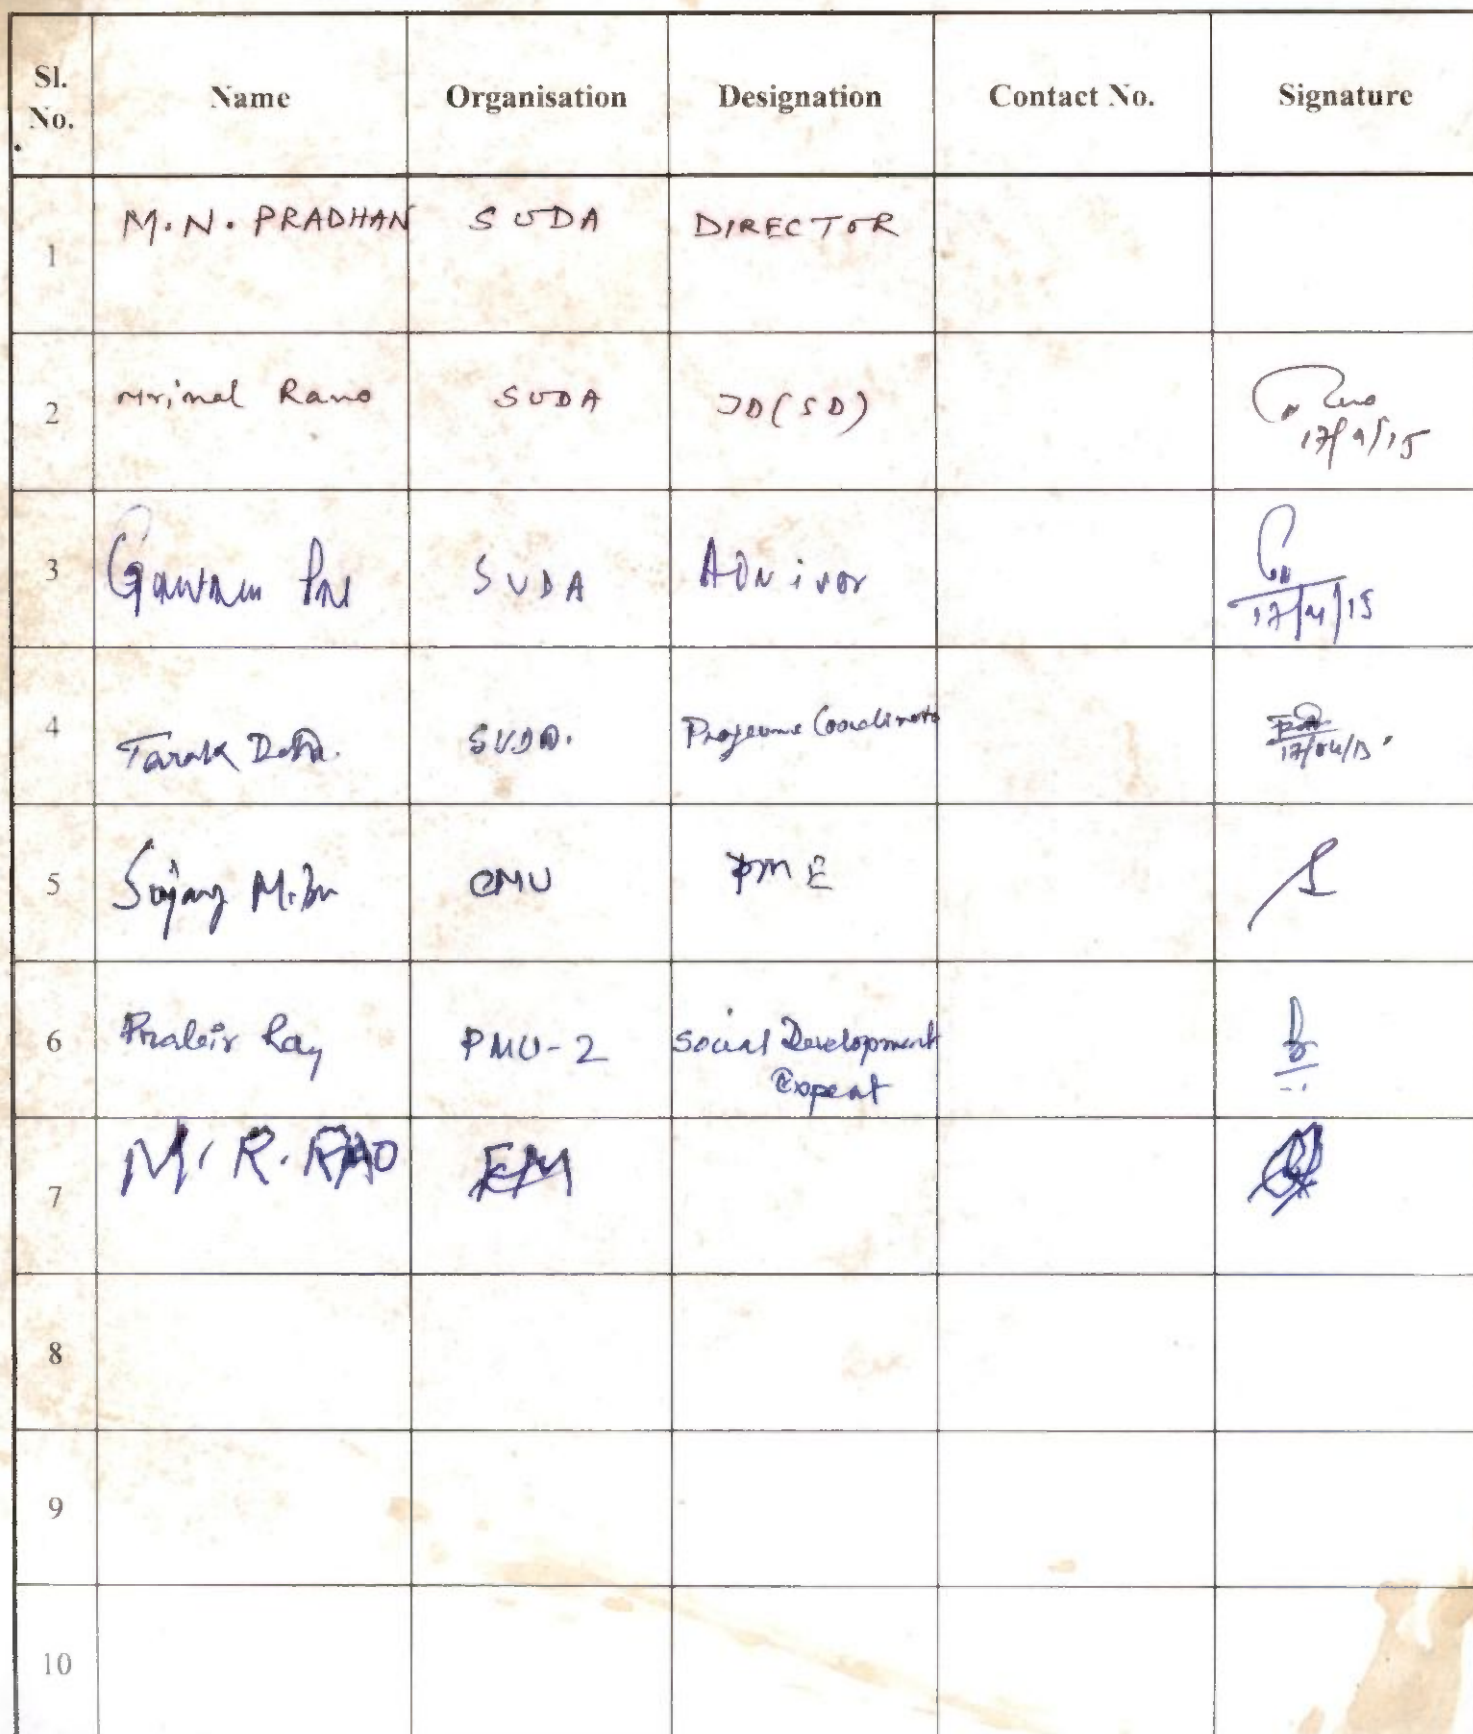 Sl. No. Name Organisation Designation Contact No. Signature
1 M.N. PRADHAN SUDA DIRECTOR
2 Mrinal Rano SUDA JD(SD) 17/4/15
3 SUDA 17/4/15
4 Tarak Datta. SUDA. Programme Coordinator 17/04/15.
5 Sujay CMU PME
6 Prabir Ray PMU-2 Social Development
Expert
7 M. R. RAO
8
9
10